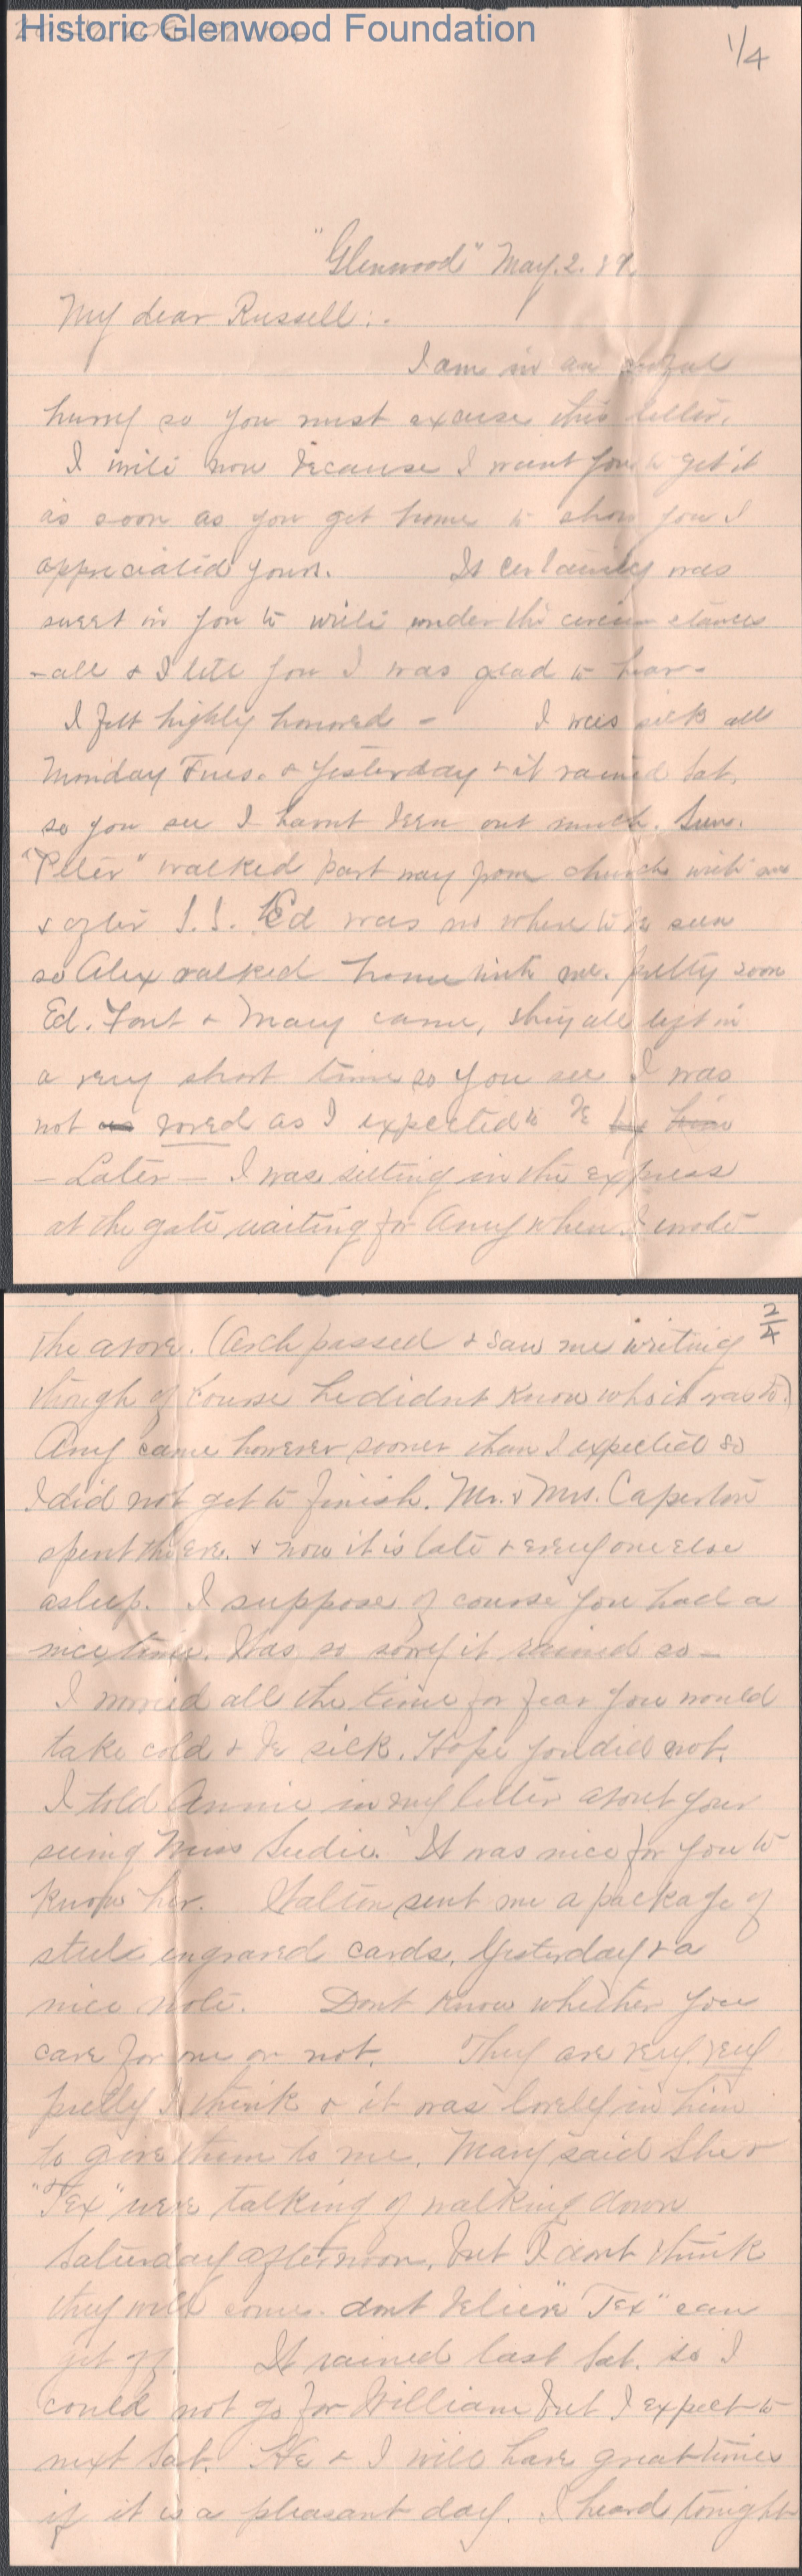 Historic Glenwood Foundation
1/4
"Glenwood" May. 2. 89.
My dear Russell:.
I am in an awful
hurry so you must excuse this letter.
I write now because I want you to get it
as soon as you get home to show you I
appreciated yours. It certainly was
sweet in you to write under the circumstances
-all & I tell you I was glad to hear-
I felt highly honored - I was sick all
Monday Tues. & Yesterday & it rained Sat.
so you see I havnt been out much. Sun.
"Peter" walked part way from church with me
& after S.S. Ed was no where to be seen
so Alex walked home with me. pretty soon
Ed. Font & Mary came, they all left in
a very short time so you see I was
not as bored as I expected to be by him
- Later - I was sitting in the express
at the gate waiting for Amy when I wrote
2/4
the above. (Arch passed & saw me writing
though of course he didnt know who it was to.)
Amy came however sooner than I expected so
I did not get to finish. Mr. & Mrs. Caperton
spent the eve. & now it is late & every one else
asleep. I suppose of course you had a
nice time. Was so sorry it rained so-
I worried all the time for fear you would
take cold & be sick. Hope you did not.
I told Annie in my letter about your
seeing "Miss Sudie." It was nice for you to
know her. Walton sent me a package of
steel engraved cards, Yesterday & a
nice note. Dont know whether you
care for one or not. They are very, very
pretty I think & it was lovely in him
to give them to me. Mary said she &
"Tex" were talking of walking down
Saturday afternoon, but I dont think
they will come. dont believe "Tex" can
get off. It rained last Sat. so I
could not go for William but I expect to
next Sat. He & I will have great times
if it is a pleasant day. I heard tonight